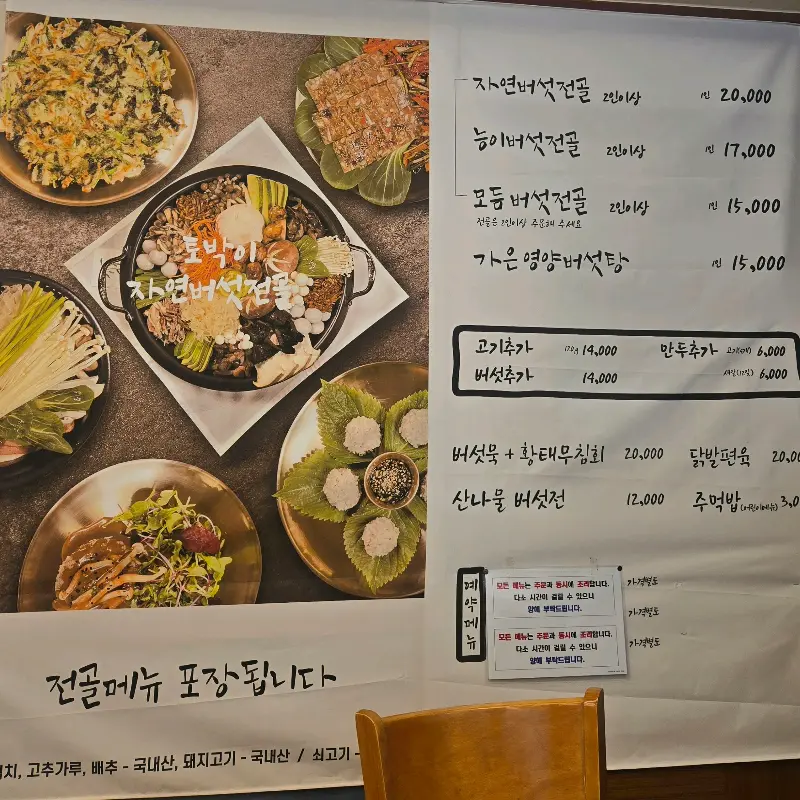 토박이
자연버섯전골
전골메뉴 포장됩니다
고추가루, 배추 - 국내산, 돼지고기 - 국내산 / 쇠고기 -
자연버섯전골 2인이상 1인 20,000
능이버섯전골 2인이상 1인 17,000
모듬버섯전골 2인이상 1인 15,000
전골은 2인이상 주문해 주세요
가은영양버섯탕 1인 15,000
고기추가 170g 14,000 만두추가 고기(4개) 6,000
버섯추가 14,000 6,000
버섯묵 + 황태무침회 20,000 닭발편육
산나물 버섯전 12,000 주먹밥(어린이메뉴)
예약메뉴
모든 메뉴는 주문과 동시에 조리합니다.
다소 시간이 걸릴 수 있으니
양해 부탁드립니다.
모든 메뉴는 주문과 동시에 조리합니다.
다소 시간이 걸릴 수 있으니
양해 부탁드립니다.
가격별도
가격별도
가격별도